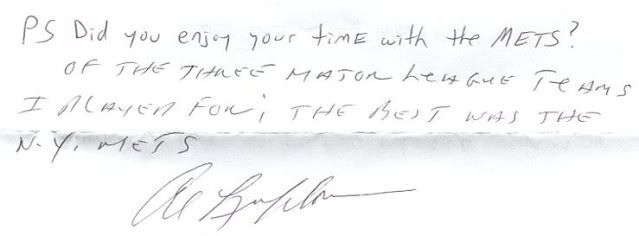 PS Did you enjoy your time with the METS?
OF THE THREE MAJOR LEAGUE TEAMS
I PLAYED FOR; THE BEST WAS THE
N.Y. METS
Al Luplow